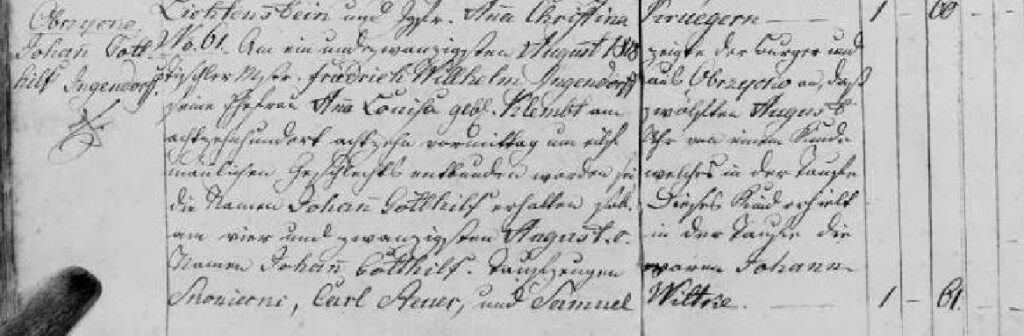 Lichtenstein und Igfr. Anna Christina Kruegern — 1 — 60
Obrzycko
Johan Gott-
hilf Ingendorff.
No. 61. Am ein und zwanzigsten August 1818 zeigte der Bürger und
Tischler Mstr. Friedrich Wilhelm Ingendorff aus Obrzycko an, daß
seine Ehefrau Ana Louisa geb. Klembt am zwölften August
achtzehnhundert achtzehn vormittag um Uhr von einem Kinde
mänlichen Geschlechts entbunden worden sei welches in der Taufe
die Namen Johañ Gotthilf erhalten hab. Dieses Kind erhielt
am vier und zwanzigsten August. c. in der Taufe die
Namen Johañ Gotthilf. Taufzeugen waren Johann
Carl und Samuel Wiltke. — 1 — 61.